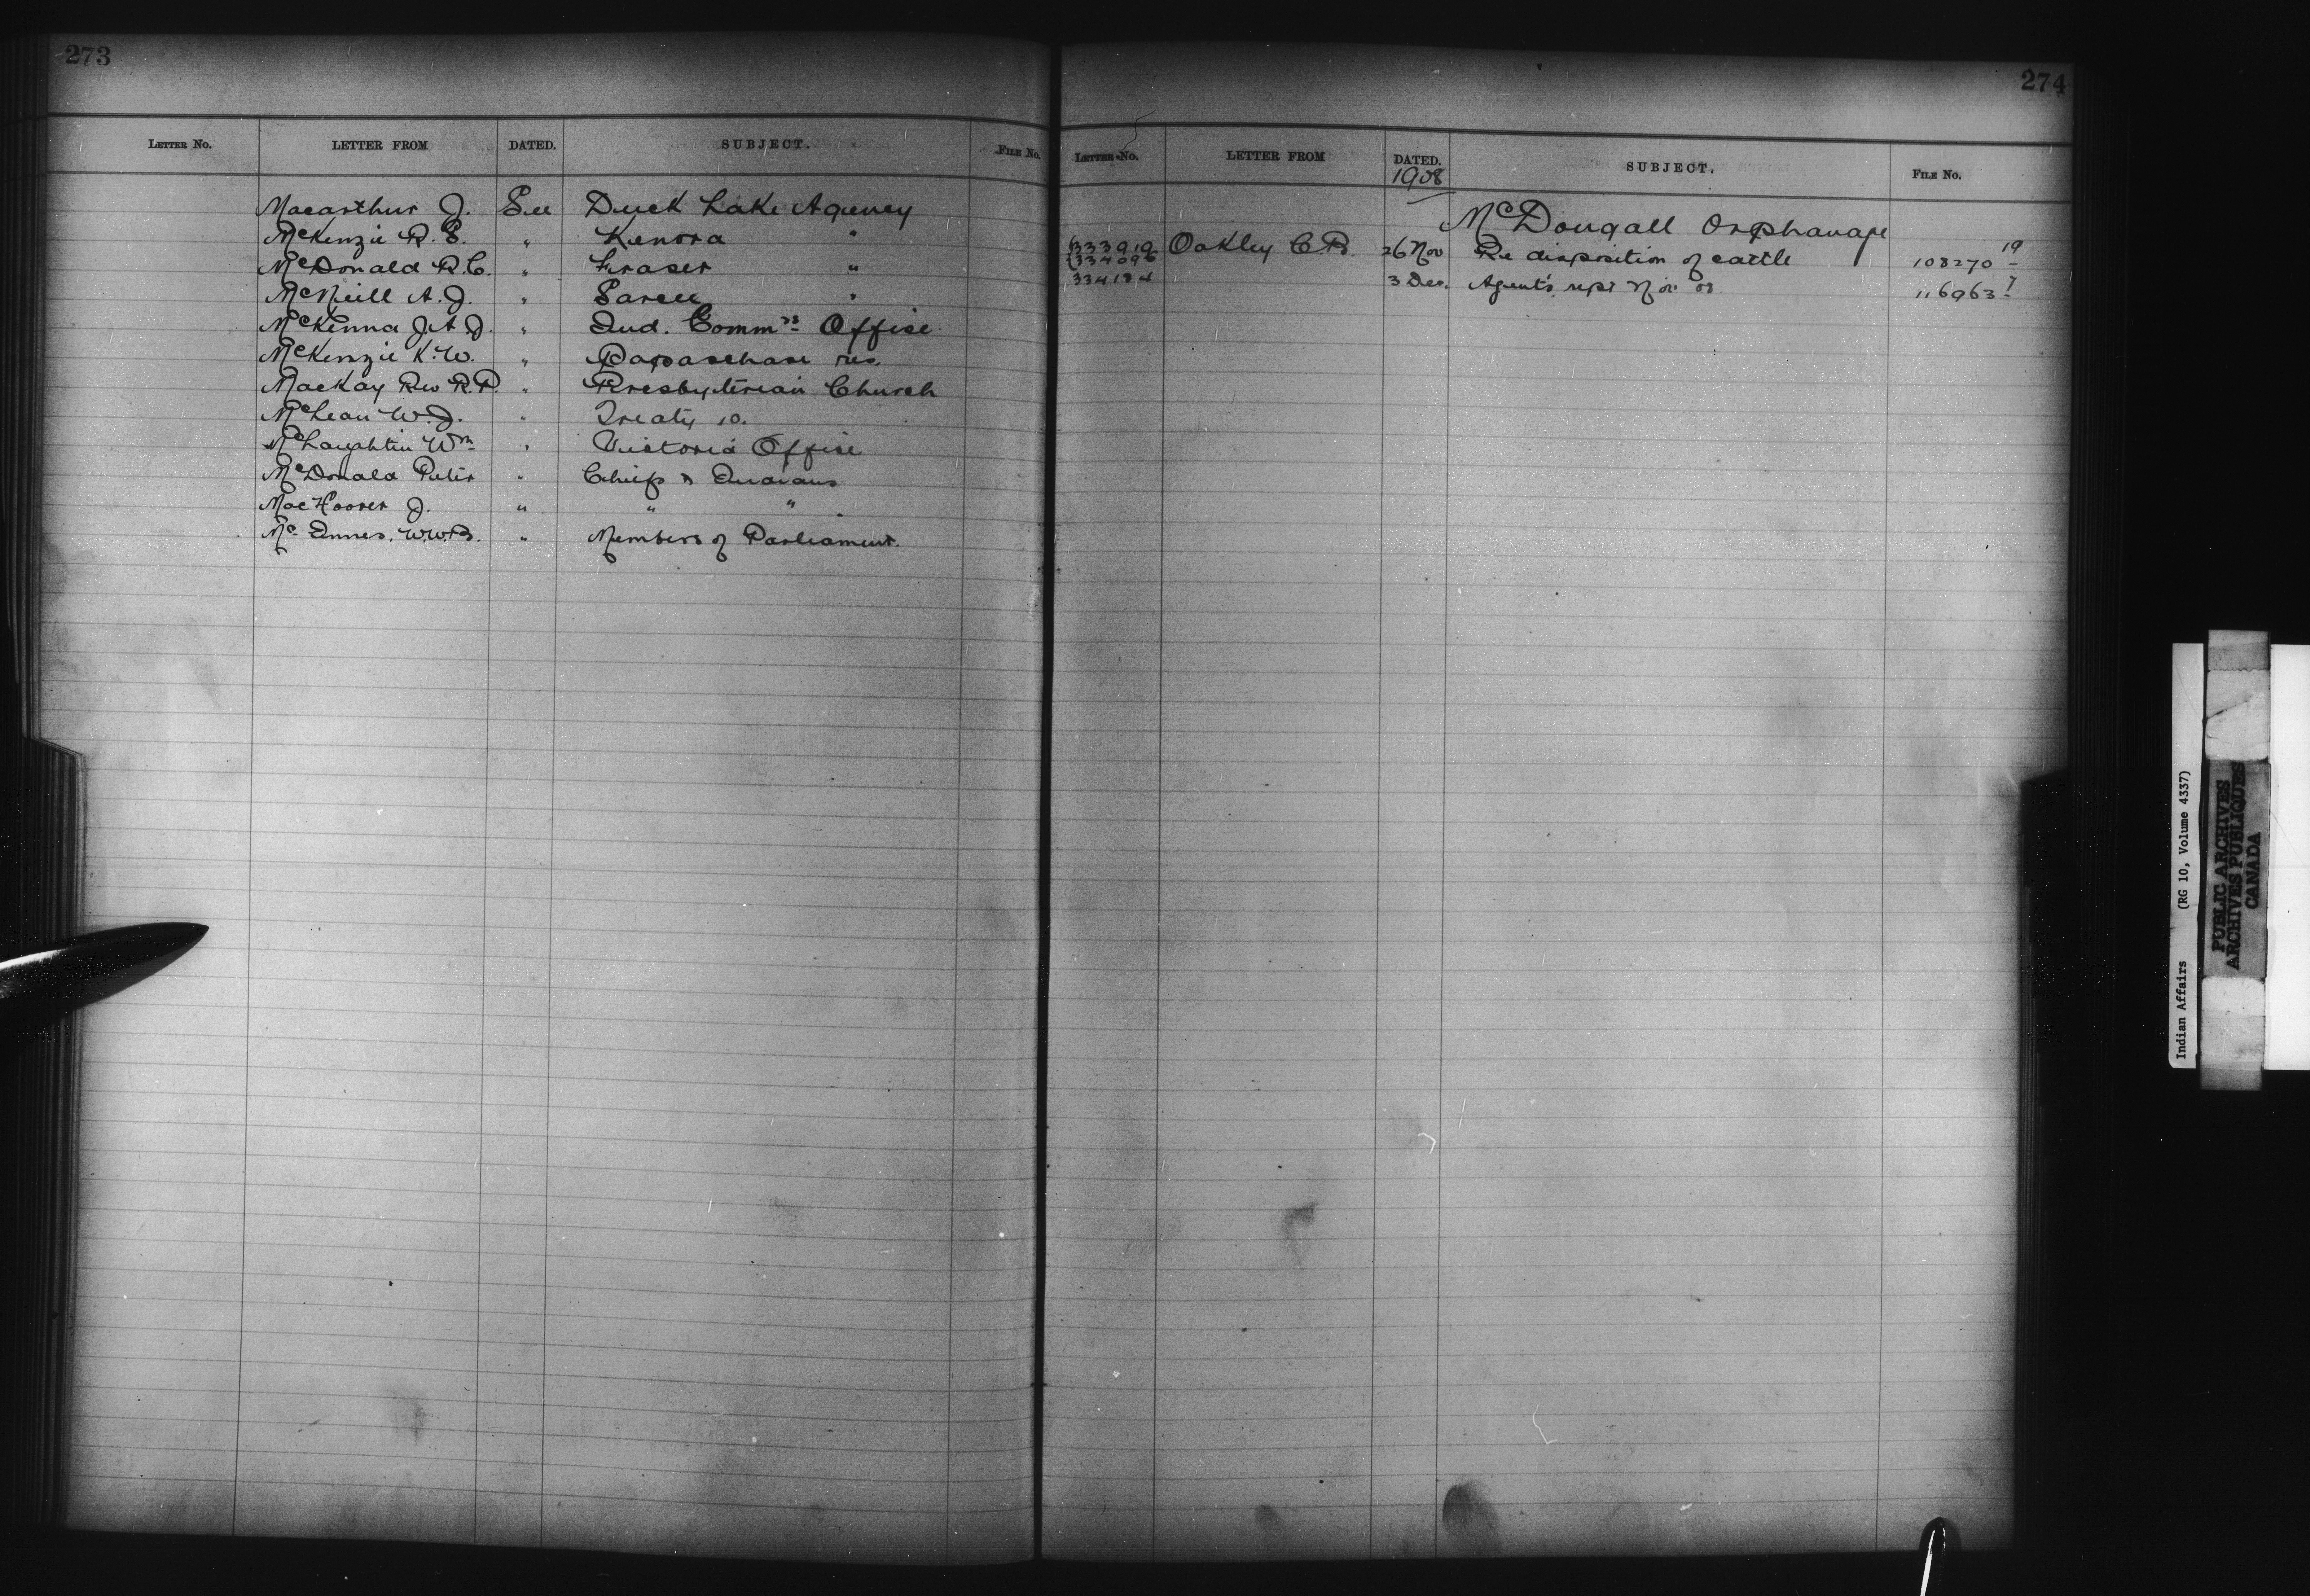 273
LETTER NO. LETTER FROM DATED. SUBJECT. FILE NO.
Macarthur J. See Duck Lake Agency
McKenzie R. S. " Kenora "
McDonald R. C. " Fraser "
McNeill A. J. " Sarcee "
McKenna J. A. J. " Ind. Commrs Office
McKenzie K. W. " Papaschase res.
MacKay Rev R. P. " Presbyterian Church
McLean W. J. " Treaty 10.
McLaughlin Wm " Victoria Office
McDonald Peter " Chiefs & Indians
MacHoover J. " " "
McInnes. W.W.B. " Members of Parliament.
274
LETTER NO. LETTER FROM DATED. SUBJECT. FILE NO.
1908
McDougall Orphanage
333919 Oakley C. B. 26 Nov Re disposition of cattle 108270 19
334096
334184 3 Dec. Agent's rept Nov 08 116963 7
Indian Affairs (RG 10, Volume 4337)
PUBLIC ARCHIVES
ARCHIVES PUBLIQUES
CANADA